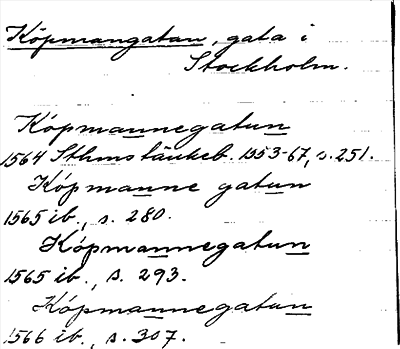 Köpmangatan, gata i
Stockholm.
Köpmannegatun
1564 Sthms tänkeb. 1553-67, s. 251.
Köpmanne gatun
1565 ib., s. 280.
Köpmannegatun
1565 ib., s. 293.
Köpmannegatun
1566 ib., s. 307.